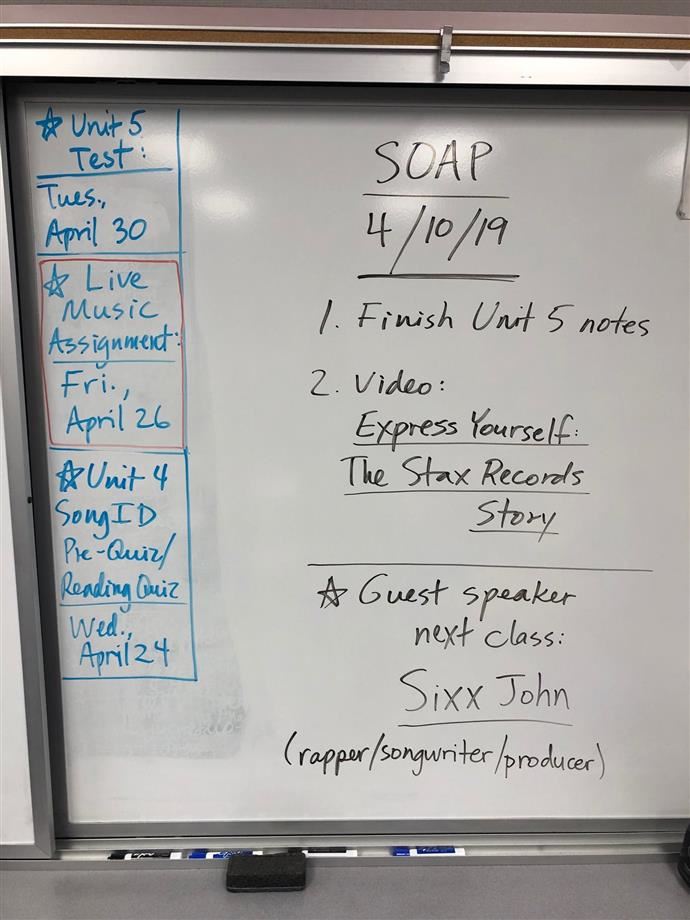 ☆ Unit 5
Test:
Tues.,
April 30
☆ Live
Music
Assignment:
Fri.,
April 26
☆ Unit 4
Song ID
Pre-Quiz/
Reading Quiz
Wed.,
April 24
SOAP
4/10/19
1. Finish Unit 5 notes
2. Video:
Express Yourself:
The Stax Records
Story
☆ Guest speaker
next class:
Sixx John
(rapper/songwriter/producer)